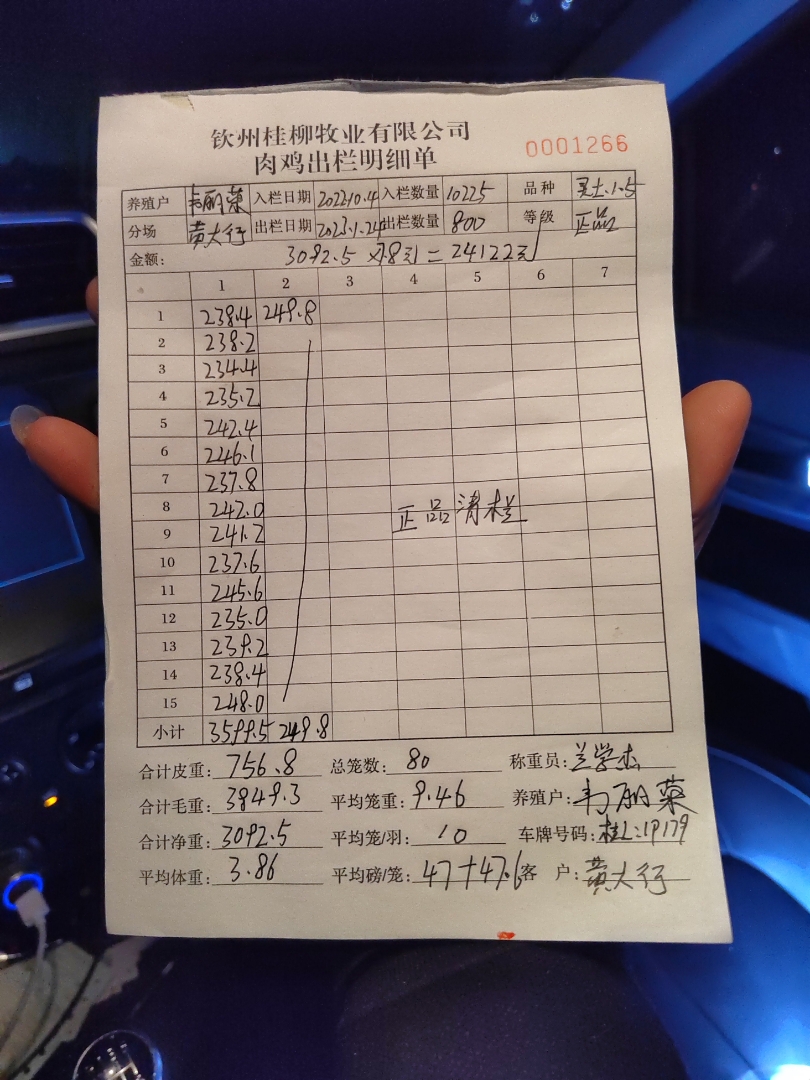 钦州桂柳牧业有限公司
肉鸡出栏明细单
0001266
养殖户 韦丽荣 入栏日期 2022.10.4 入栏数量 10225 品种
分场 黄大行 出栏日期 2023.1.24 出栏数量 800 等级 正品
金额: 3092.5 × = 24122
1 2 3 4 5 6 7
1 238.4 249.8
2 238.2
3 234.4
4 235.2
5 242.4
6 246.1
7 237.8
8 242.0
正品清栏
9 241.2
10 237.6
11 245.6
12 235.0
13 239.2
14 238.4
15 248.0
小计 3599.5 249.8
合计皮重: 756.8 总笼数: 80 称重员: 兰学杰
合计毛重: 3849.3 平均笼重: 9.46 养殖户: 韦丽荣
合计净重: 3092.5 平均笼/羽: 10 车牌号码: 桂L:1P179
平均体重: 3.86 平均磅/笼: 47+47.6 客 户: 黄大行